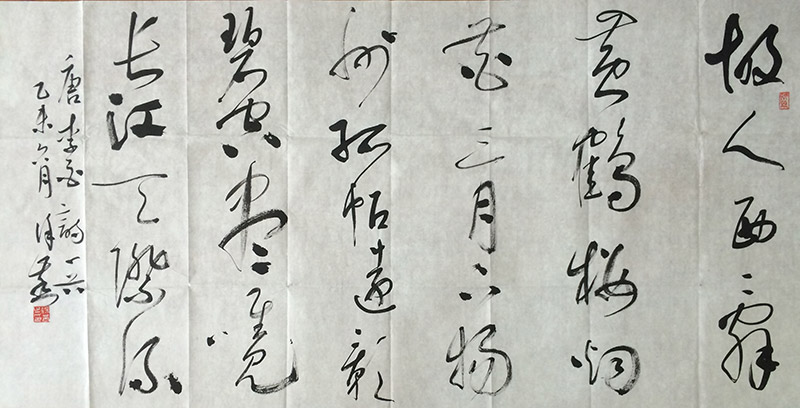 故人西辞
黄鶴楼烟
花三月下扬
州孤帆遠影
碧空尽唯见
长江天際流
唐李白诗一首
乙未六月